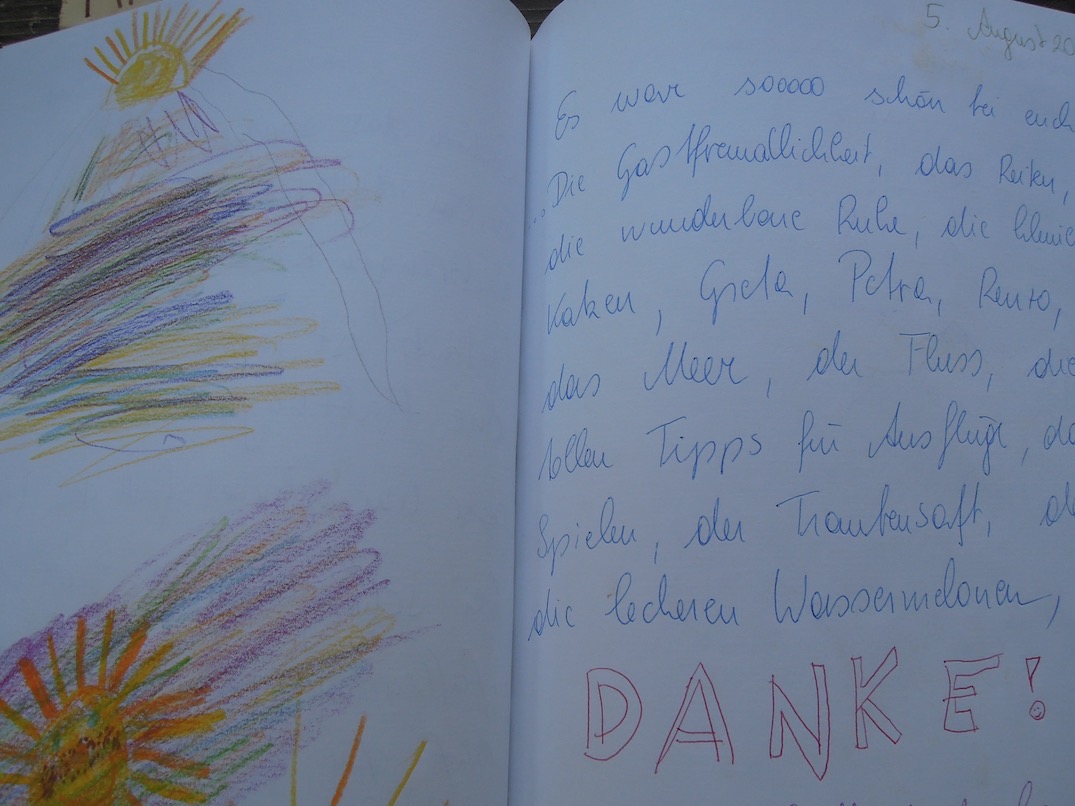 5. August 20
Es war sooooo schön bei euch
Die Gastfreundlichkeit, das Reiten,
die wunderbare Ruhe, die kleine
Katzen, Greta, Petra, Renzo,
das Meer, der Fluss, die
tollen Tipps für Ausflüge, da
Spielen, der Traubensaft, d
die leckeren Wassermelonen,
DANKE!